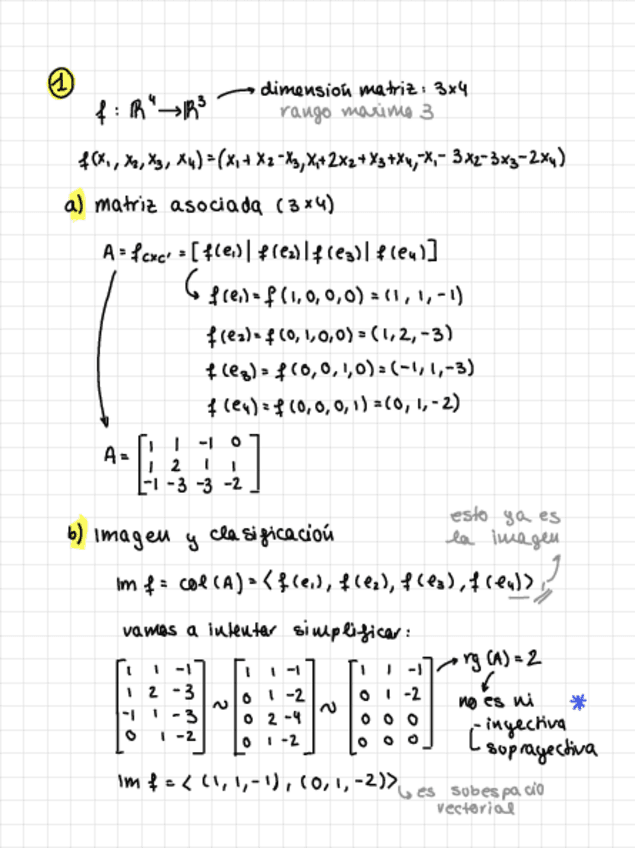 1
f : ℝ⁴ → ℝ³ → dimensión matriz: 3x4
rango maximo 3
f(x₁, x₂, x₃, x₄) = (x₁ + x₂ - x₃, x₁ + 2x₂ + x₃ + x₄, -x₁ - 3x₂ - 3x₃ - 2x₄)
a) matriz asociada (3x4)
A = f_cxc' = [f(e₁) | f(e₂) | f(e₃) | f(e₄)]
f(e₁) = f(1,0,0,0) = (1, 1, -1)
f(e₂) = f(0,1,0,0) = (1, 2, -3)
f(e₃) = f(0,0,1,0) = (-1, 1, -3)
f(e₄) = f(0,0,0,1) = (0, 1, -2)
A = [1 1 -1 0
1 2 1 1
-1 -3 -3 -2]
b) Imagen y clasificación
esto ya es
la imagen
Im f = col(A) = < f(e₁), f(e₂), f(e₃), f(e₄) >
vamos a intentar simplificar:
[1 1 -1 ~ [1 1 -1 ~ [1 1 -1 → rg(A) = 2
1 2 -3 0 1 -2 0 1 -2 no es ni *
-1 1 -3 0 2 -4 0 0 0 - inyectiva
0 1 -2] 0 1 -2] 0 0 0] soprayectiva
Im f = < (1, 1, -1), (0, 1, -2) > es subespacio
vectorial